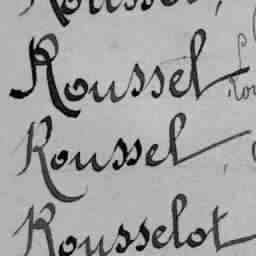 Roussel
Roussel
Rousselot